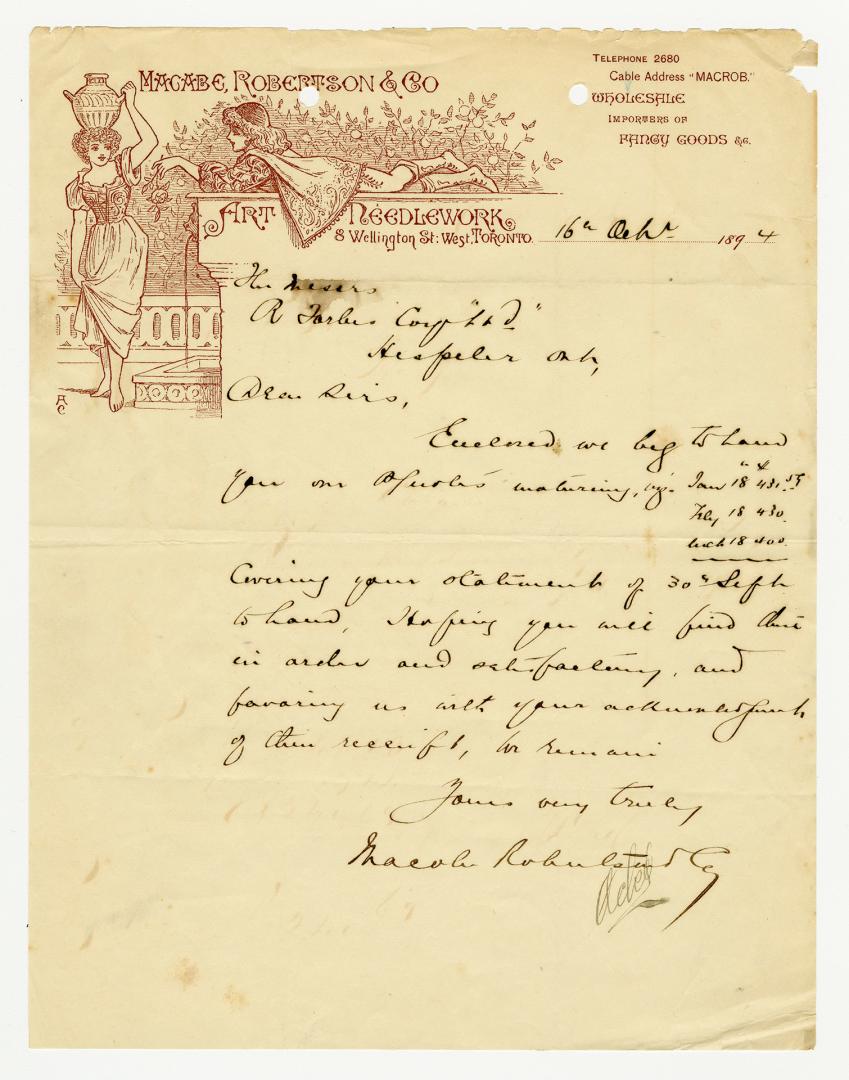 MACABE, ROBERTSON & CO
TELEPHONE 2680
Cable Address "MACROB."
WHOLESALE
IMPORTERS OF
FANCY GOODS &c.
ART NEEDLEWORK,
8 Wellington St: West, TORONTO.
16th Octr 1894
The Messrs
R Forbes Coy "Ltd"
Hespeler Ont,
Dear Sirs,
Enclosed we beg to hand
you our notes maturing, Jan 18 431.
Feby 18 430.
Mch 18 400.
Covering your statement of 30th Sept
to hand, Hoping you will find this
in order and satisfactory, and
favoring us with your acknowledgment
of their receipt, We remain
Yours very truly
Macabe Robertson & Co
AC